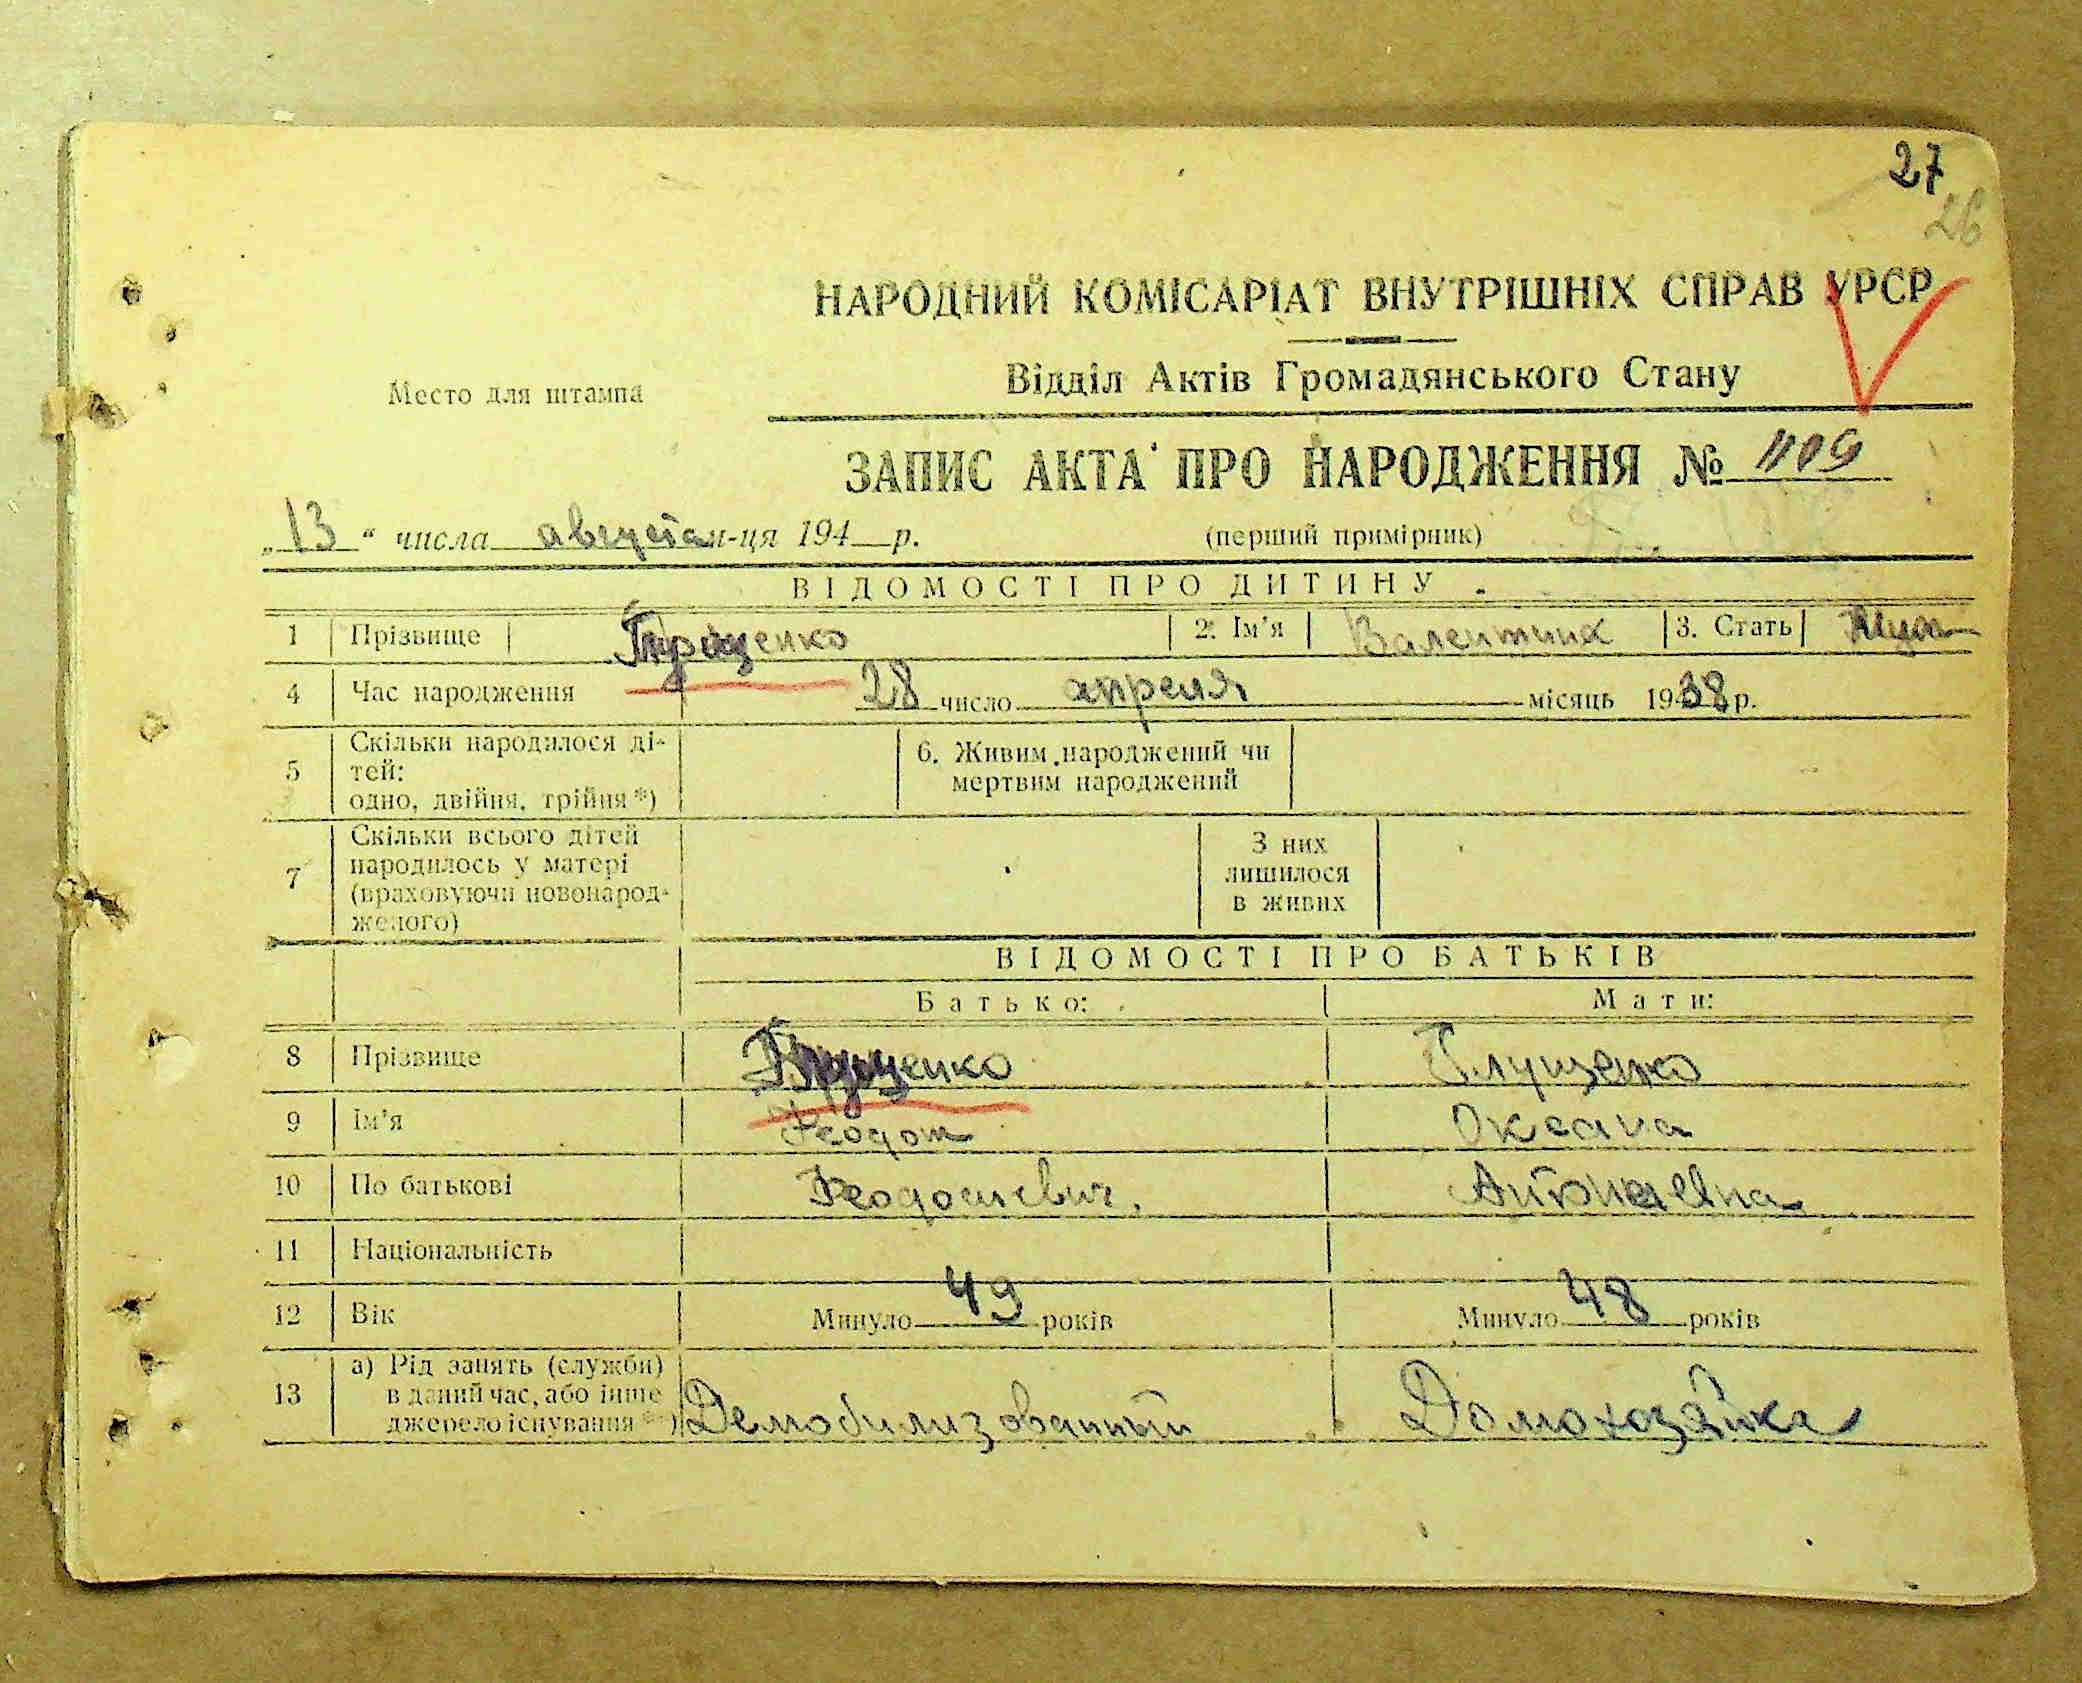 27
26
НАРОДНИЙ КОМІСАРІАТ ВНУТРІШНІХ СПРАВ УРСР
Место для штампа
Відділ Актів Громадянського Стану
ЗАПИС АКТА ПРО НАРОДЖЕННЯ № 1109
„13“ числа августа м-ця 194 р. (перший примірник)
ВІДОМОСТІ ПРО ДИТИНУ
1 Прізвище 2. Ім'я Валентина 3. Стать
4 Час народження 28 число апреля місяць 1938 р.
5 Скільки народилося ді-
тей:
одно, двійня, трійня *)
6. Живим народжений чи
мертвим народжений
7 Скільки всього дітей
народилось у матері
(враховуючи новонарод-
желого)
З них
лишилося
в живих
ВІДОМОСТІ ПРО БАТЬКІВ
Батько: Мати:
8 Прізвище Глущенко
9 Ім'я Феодот Оксана
10 По батькові Феодосиевич. Антоновна
11 Національність
12 Вік Минуло 49 років Минуло 48 років
13 а) Рід занять (служби)
в даний час, або інше
джерело існування **)
Демобилизованный Домохозяйка